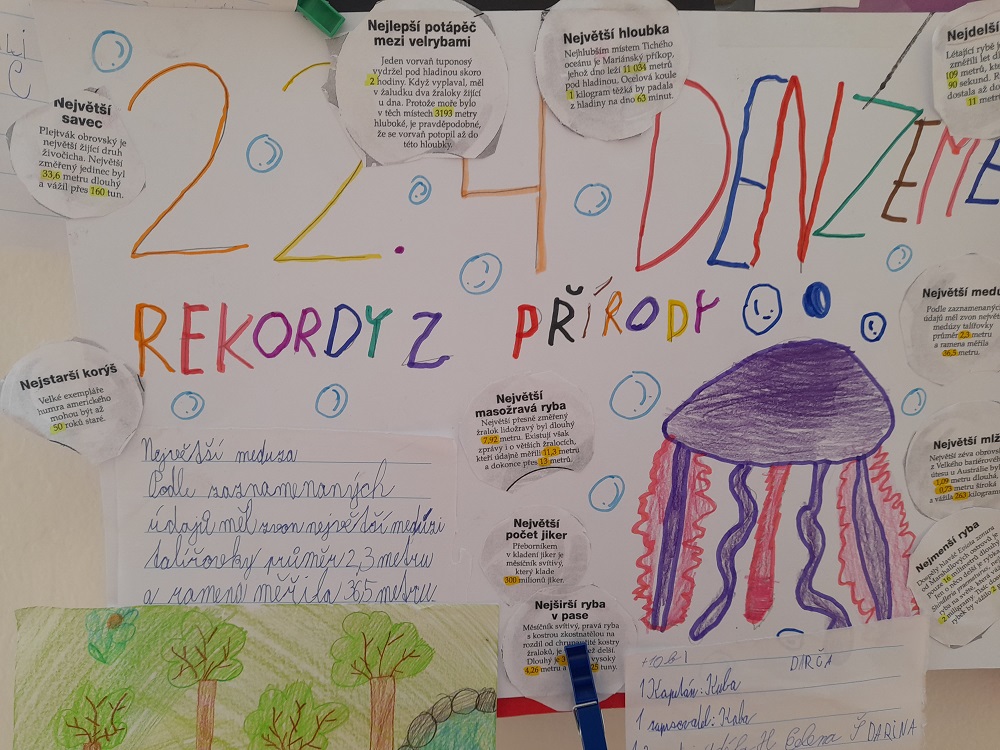 Největší
savec
Plejtvák obrovský je
největší žijící druh
živočicha. Největší
změřený jedinec byl
33,6 metru dlouhý
a vážil přes 160 tun.
Nejlepší potápěč
mezi velrybami
Jeden vorvaň tuponosý
vydržel pod hladinou skoro
2 hodiny. Když vyplaval, měl
v žaludku dva žraloky žijící
u dna. Protože moře bylo
v těch místech 3193 metry
hluboké, je pravděpodobné,
že se vorvaň potopil až do
této hloubky.
Největší hloubka
Nejhlubším místem Tichého
oceánu je Mariánský příkop,
jehož dno leží 11 034 metrů
pod hladinou. Ocelová koule
1 kilogram těžká by padala
z hladiny na dno 63 minut.
Nejdelší
Létající rybě j
změřili let dl
109 metrů, kt
90 sekund. R
dostala až do
11 metrů
22.4 DEN ZEMĚ
REKORDY Z PŘÍRODY
Největší medu
Podle zaznamenaných
údajů měl zvon největší
medúzy talířovky
průměr 2,3 metru
a ramena měřila
36,5 metru.
Nejstarší korýš
Velké exempláře
humra amerického
mohou být až
50 roků staré.
Největší
masožravá ryba
Největší přesně změřený
žralok lidožravý byl dlouhý
7,92 metru. Existují však
zprávy o větších žralocích,
kteří údajně měřili 11,3 metru
a dokonce přes 13 metrů.
Největší mlž
Největší zéva obrovs
z Velkého bariérové
útesu u Austrálie byl
1,09 metru dlouhá,
0,73 metru široká
a vážila 263 kilogram
Největší meduza
Podle zaznamenaných
údajů měl zvon největší medúzi
talířovky průměr 2,3 metru
a ramene měřila 36,5 metru.
Největší
počet jiker
Přeborníkem
v kladení jiker je
měsíčník svítivý,
který klade
300 milionů jiker.
Nejmenší ryba
Dospělý hlaváč
od Marshallových ostrovů je
Pouze 16 milimetrů dlouhý.
2 miligramy.
Nejširší ryba
v pase
Měsíčník svítivý, pravá ryba
s kostrou zkostnatělou na
rozdíl od chrupavčité kostry
žraloků, je delší.
Dlouhý je vysoký
4,26 metru a tuny.
DÁRČA
1 Kapitán: Kuba
1 zapisovatel: Kuba
DARINA